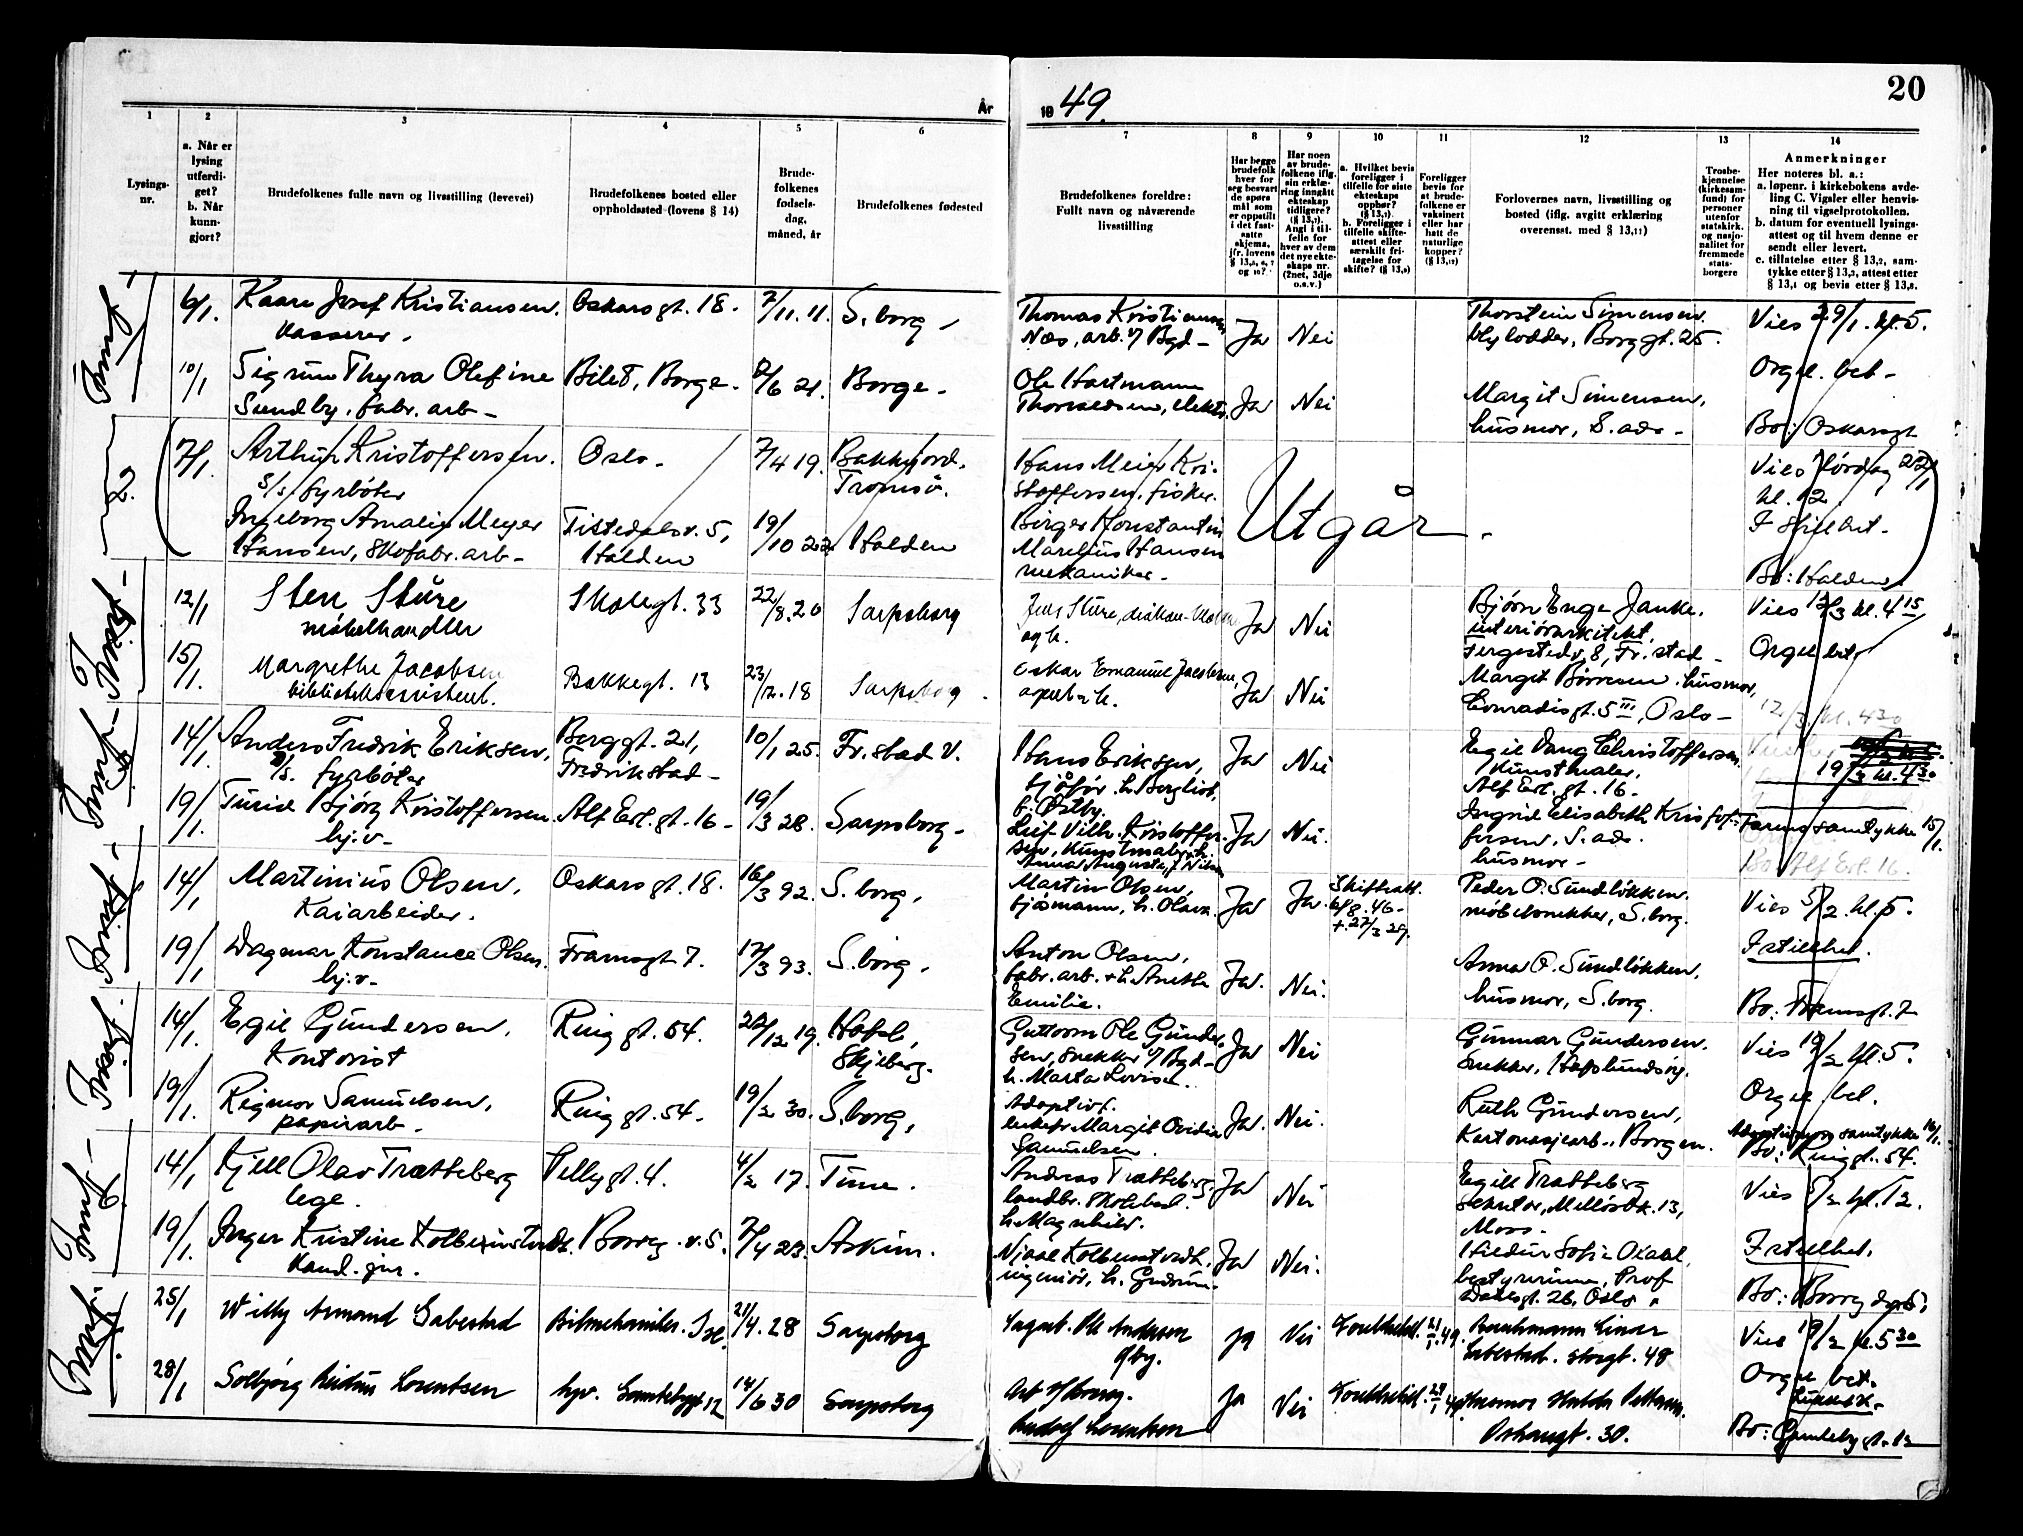 År
1
2
3
4
5
6
Lysings-
nr.
a. Når er
lysing
utferdi-
get?
b. Når
kunn-
gjort?
Brudefolkenes fulle navn og livsstilling (levevei)
Brudefolkenes bosted eller
oppholdssted (lovens § 14)
Brude-
folkenes
fødsels-
dag,
måned, år
Brudefolkenes fødested
6/1.
Kaare Josef Kristiansen.
kasserer.
Oskarsgt. 18.
7/11. 11.
S.borg,
10/1
Sigrun Thyra Olefine
Sundby. fabr. arb-
Bilet, Borge.
2/6 21.
Borge-
2.
7/1.
Arthur Kristoffersen.
S/s. fyrbøter
Oslo-
7/4 19.
Bakkejord.
Tromsø.
Ingeborg Amalie Meyer
Hansen, skofabr. arb-
Tistedalsv. 5,
Halden
19/10 22.
Halden
12/1
Sten Sture
møbelhandler
Skolegt. 33
22/8. 20
Sarpsborg
15/1.
Margrethe Jacobsen
biblioteksassistent.
Bakkegt. 13
23/12. 18
Sarpsborg.
14/1.
Anders Fredrik Eriksen,
S/s. fyrbøter
Borggt. 21,
Fredrikstad-
10/1 25.
Fr.stad V.
19/1.
Turid Bjørg Kristoffersen
hj.v-
Alf Erl. gt. 16-
19/3 28.
Sarpsborg-
14/1
Martinius Olsen,
Kaiarbeider.
Oskarsgt. 18.
16/3 92.
S.borg,
19/1
Dagmar Konstance Olsen.
hj.v-
Framsgt 7.
17/3 93.
S.borg,
14/1
Egil Gundersen,
Kontorist
Ringgt. 54.
20/12 19.
Hafsl,
Skjeberg.
19/1.
Rigmor Samuelsen,
papirarb-
Ringgt. 54-
19/2 30.
S.borg,
14/1
Kjell Olav Trætteberg
lege.
Pellygt. 4.
4/2 17.
Tune.
19/1.
Inger Kristine Kolbenstvedt.
Kand. jur.
Borreg. v. 5.
7/4 23.
Askim.
25/1
Willy Armand Gabestad
21/4. 28
Sarpsborg
28/1
Solbjørg Reidun Lorentsen
hjv. Gamlebygt 12
14/6 30
Sarpsborg
1949.
20
7
8
9
10
11
12
13
14
Brudefolkenes foreldre:
Fullt navn og nåværende
livsstilling
Har begge
brudefolk
hver for
seg besvart
de spørs-
mål som
er oppstilt
i det fast-
satte
skjema,
jfr. lovens
§ 13,5, 6, 7
og 10?
Har noen
av brude-
folkene iflg.
sin erklæ-
ring inngått
ekteskap
tidligere?
(§ 13,7).
Angi i til-
felle for
hver av dem
det nye ekte-
skaps nr.
(2net, 3dje
o.s.v.)
a. Hvilket bevis
foreligger i
tilfelle for siste
ekteskaps
opphør?
(§ 13,7).
b. Foreligger i
tilfelle skifte-
attest eller
særskilt fri-
tagelse for
skifte? (§ 13,9)
Foreligger
bevis for
at brude-
folkene er
vaksinert
eller har
hatt de
naturlige
kopper?
(§ 13,12)
Forlovernes navn, livsstilling og
bosted (iflg. avgitt erklæring
overensst. med § 13,11)
Trosbe-
kjennelse
(kirkesam-
fund) for
personer
utenfor
statskirk.
og nasjo-
nalitet for
fremmede
stats-
borgere
Anmerkninger
Her noteres bl. a.:
a. løpenr. i kirkebokens avde-
ling C. Vigsler eller henvis-
ning til vigselprotokollen.
b. datum for eventuell lysings-
attest og til hvem denne er
sendt eller levert.
c. tillatelse etter § 13,2, sam-
tykke etter § 13,3, attest etter
§ 13,1 og bevis etter § 13,8.
Thomas Kristiansen
Næs, arb. v/ Bgd-
Ja
Nei
Thorstein Simensen.
blylodder, Borggt. 25.
Vies 29/1. kl. 5.
Orgel. bet-
Ole Hartmann
Thorvaldsen, elektr.
Ja
Nei
Margit Simensen,
husmor, S. ads-
Bo: Oskarsgt
Hans Meier Kri-
stoffersen, fisker.
Birger Konstantin
Marelius Hansen
mekaniker-
Utgår-
Vies lørdag 22/1
kl. 12.
I stillhet-
Bo: Halden
Jens Sture,
og h.
Ja
Nei
Bjørn Enge Janke.
interiørarkitekt,
Fergestedv. 8, Fr.stad-
Vies 12/3 kl. 4 15
Orgel bet
Oskar Emanuel Jacobsen,
Ja
Nei
Margit Børresen. husmor,
Conradisgt. 5 III, Oslo-
12/3. kl. 4 30
Hans Eriksen,
sjåfør. h. Bergliot,
f. Østby.
Ja
Nei
Egil Vang Christoffersen.
Kunstmaler,
Alf Erl. gt. 16-
19/3 kl. 4 30
Leif Vilh. Kristoffer-
sen, Kunstmaler, h.
Anna Augusta, f. Nilsen
Ja
Nei.
Ingrid Elisabeth Kristof-
fersen, S. ads.
husmor-
Farens samtykke 15/1.
Bo: Alf Erl. 16.
Martin Olsen,
sjømann, h. Olava.
Ja
Ja.
Skifteatt.
6/8. 46-
+ 27/3 29.
Peder O. Sundløkken.
møbelsnekker, S.borg.
Vies 5/2. kl. 5.
I stillhet.
Anton Olsen,
fabr. arb. + h. Anette
Emilie.
Ja.
Nei.
Anna O. Sundløkken,
husmor, S.borg.
Bo: Framsgt. 7
Guttorm Ole Gunder-
sen, snekker v/ Bgd-
h. Marta Lovise.
Ja
Nei
Gunnar Gundersen.
snekker, Hafslundsøy.
Vies 19/2 kl. 5.
Orgel bet.
Adoptivf.
enkefr. Margit Ovidia
Samuelsen.
Ja.
Nei.
Ruth Gundersen,
Kartonasjearb-, Borgen.
Adoptivmors samtykke 16/1.
Bo: Ringgt. 54.
Andreas Trætteberg
landbr. skolebest.
h. Magnhild.
Ja
Nei
Egill Trætteberg
sekretær, Melløsbk. 13,
Moss.
Vies 5/2 kl. 12.
I stillhet.
Njaal Kolbenstvedt,
ingeniør, h. Gudrun.
Ja
Nei.
Hildur Sofie Odahl,
bestyrerinne, Prof
Dahlsgt. 26, Oslo.
Bo: Borregd.v. 5.
Ole Andersen
Ja
Nei
21/1. 49.
Storgt. 48
Vies 19/2 kl. 5 30
Orgel bet.
Rudolf Lorentsen
Ja
Nei
Oskarsgt. 30.
Bo: Gamlebygt. 12